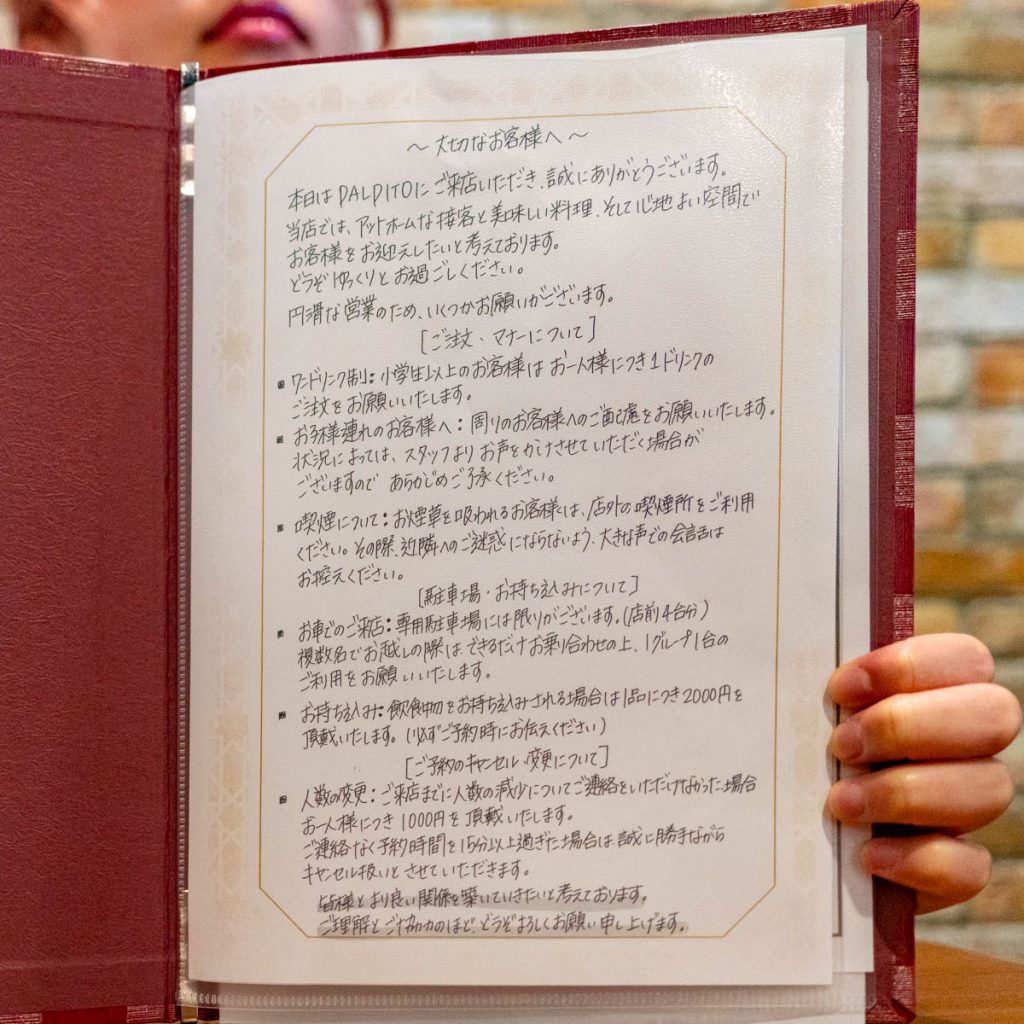 ～大切なお客様へ～
本日はPALPITOにご来店いただき、誠にありがとうございます。
当店では、アットホームな接客と美味しい料理、そして心地よい空間で
お客様をお迎えしたいと考えております。
どうぞゆっくりとお過ごしください。
円滑な営業のため、いくつかお願いがございます。
[ご注文・マナーについて]
ワンドリンク制：小学生以上のお客様はお一人様につき1ドリンクの
ご注文をお願いいたします。
お子様連れのお客様へ：周りのお客様へのご配慮をお願いいたします。
状況によっては、スタッフよりお声をかけさせていただく場合が
ございますので あらかじめご了承ください。
喫煙について：お煙草を吸われるお客様は、店外の喫煙所をご利用
ください。その際、近隣へのご迷惑にならないよう、大きな声での会話は
お控えください。
[駐車場・お持ち込みについて]
お車でのご来店：専用駐車場には限りがございます。(店前4台分)
複数名でお越しの際は、できるだけお乗り合わせの上、1グループ1台の
ご利用をお願いいたします。
お持ち込み：飲食物をお持ち込みされる場合は1品につき2000円を
頂戴いたします。(必ずご予約時にお伝えください)
[ご予約のキャンセル・変更について]
人数の変更：ご来店までに人数の減少についてご連絡をいただけなかった場合
お一人様につき1000円を頂戴いたします。
ご連絡なく予約時間を15分以上過ぎた場合は誠に勝手ながら
キャンセル扱いとさせていただきます。
皆様とより良い関係を築いていきたいと考えております。
ご理解とご協力のほど、どうぞよろしくお願い申し上げます。